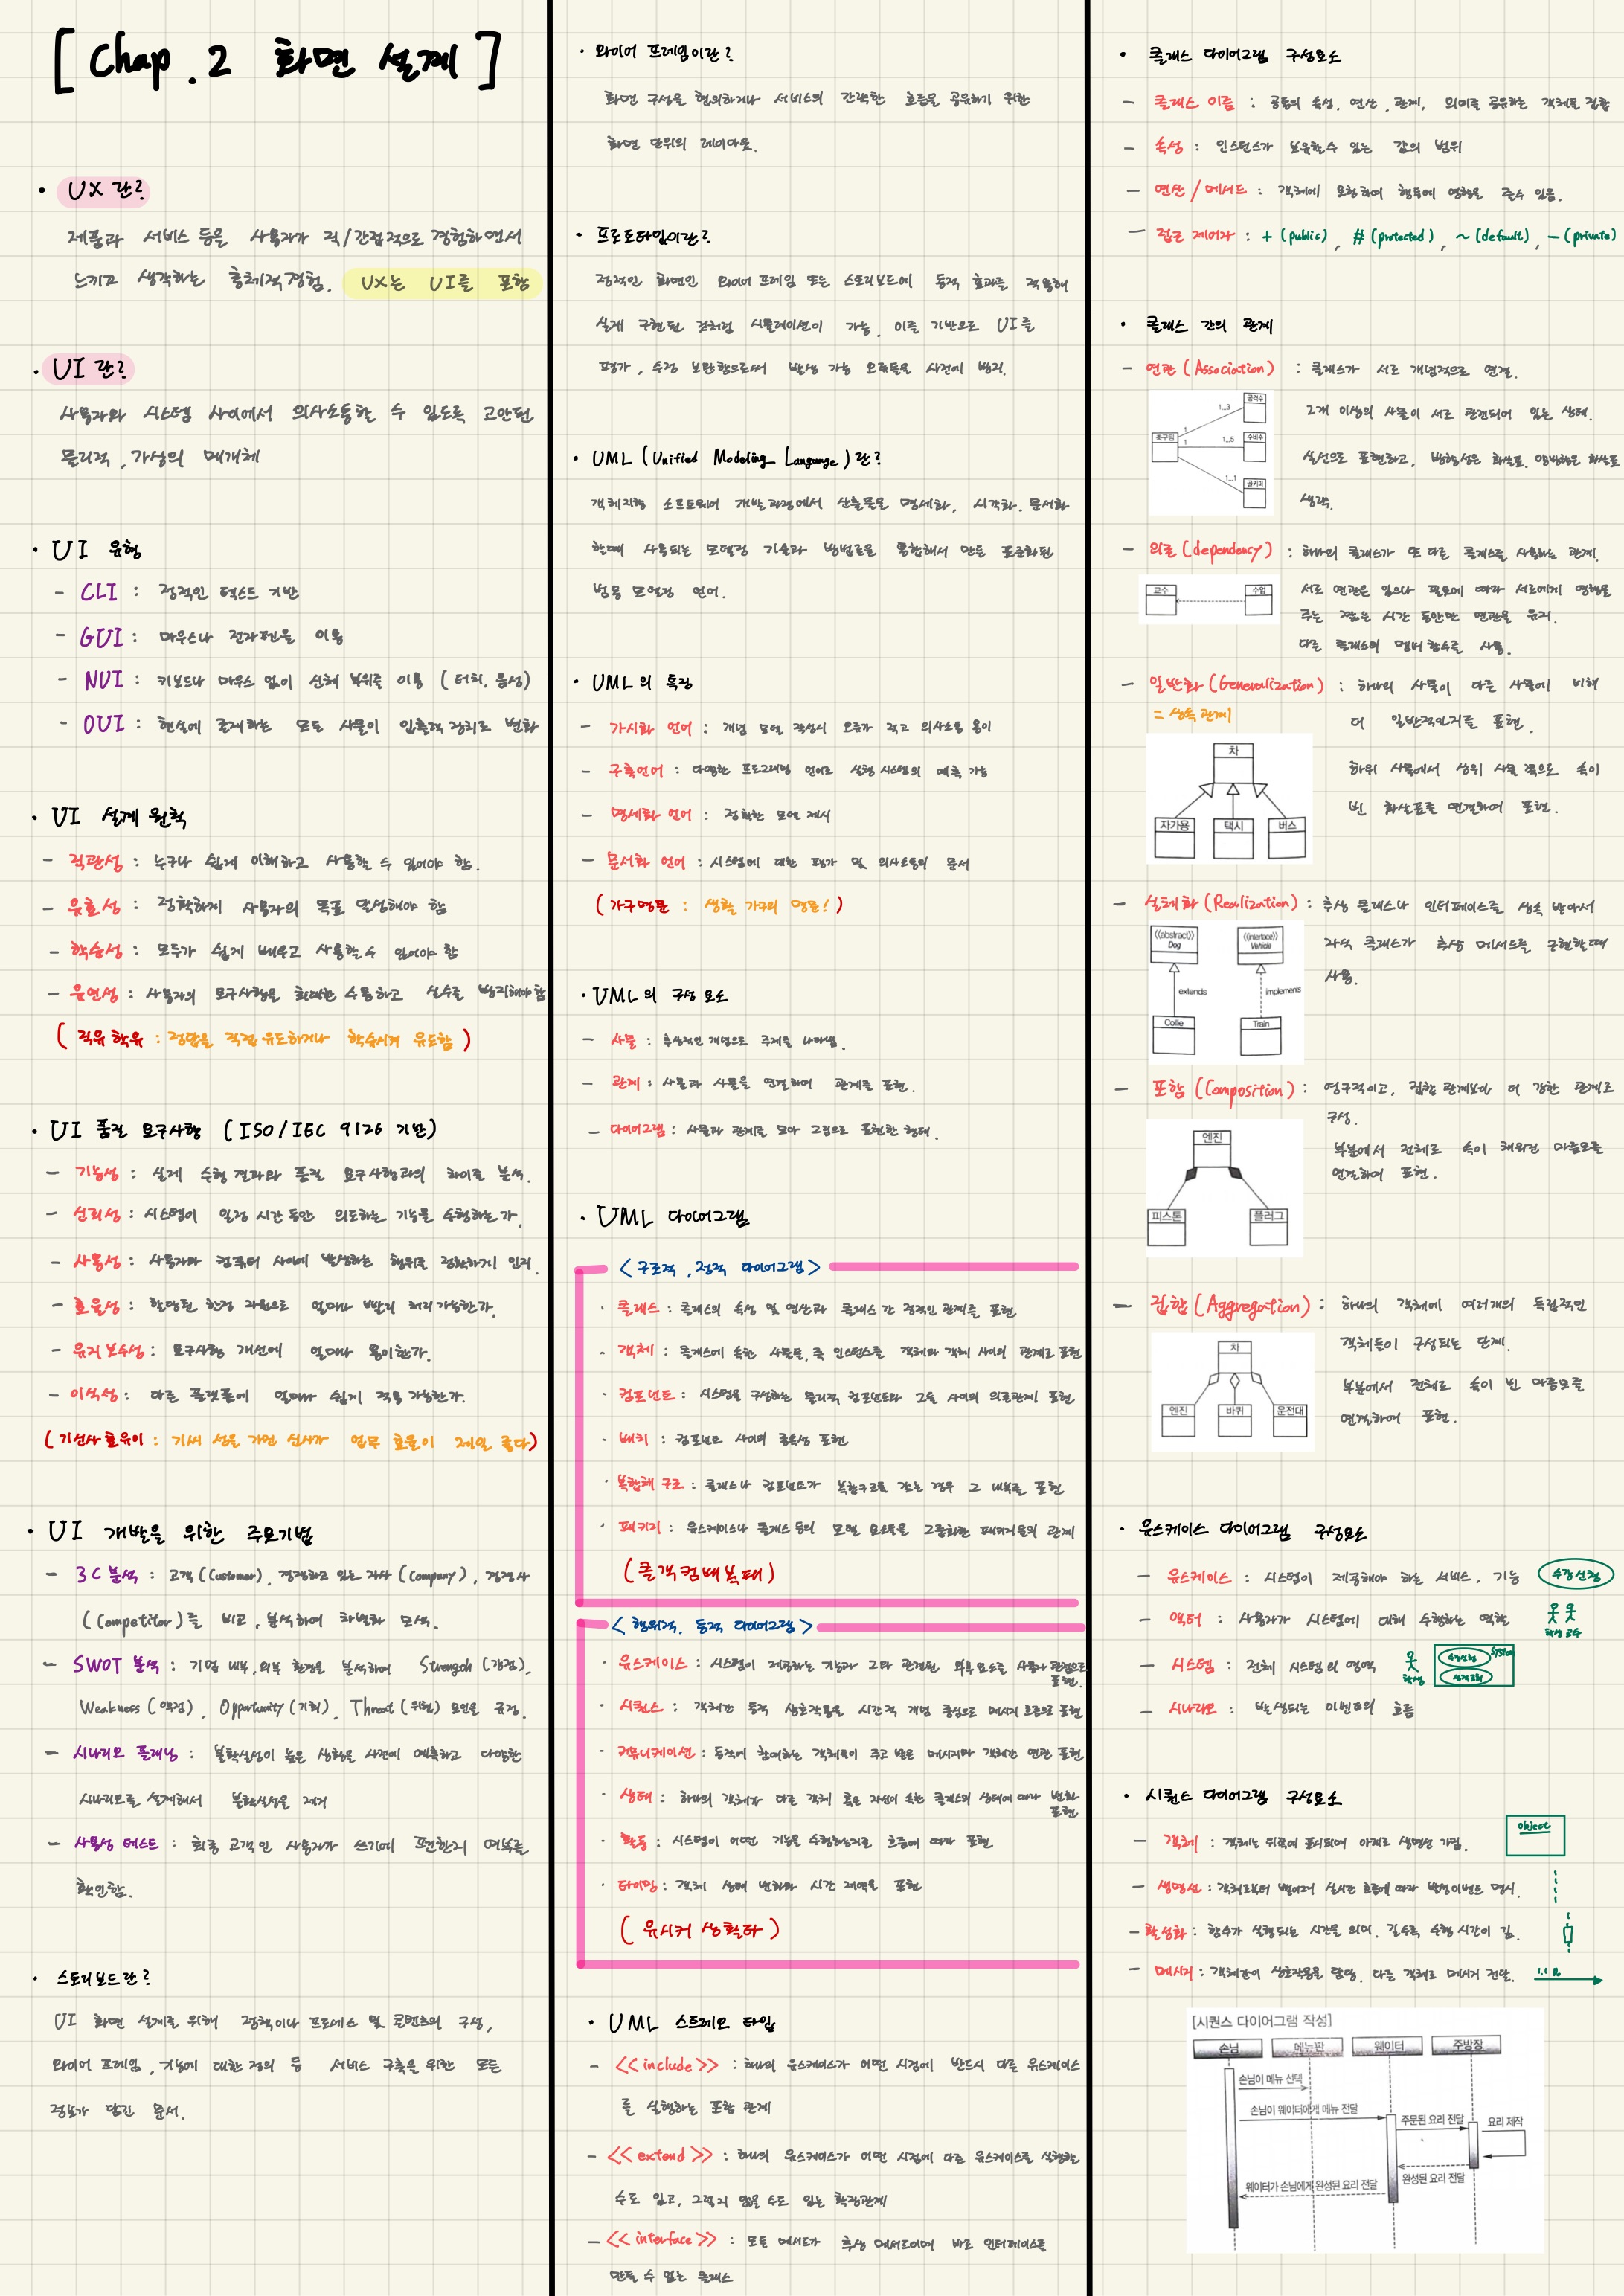 [ Chap.2 화면 설계 ]
• UX 란?
제품과 서비스 등을 사용자가 직/간접적으로 경험하면서
느끼고 생각하는 총체적 경험. UX는 UI를 포함
• UI 란?
사용자와 시스템 사이에서 의사소통할 수 있도록 고안된
물리적, 가상의 매개체
• UI 유형
- CLI : 정적인 텍스트 기반
- GUI : 마우스나 전자펜을 이용
- NUI : 키보드나 마우스 없이 신체 부위를 이용 (터치, 음성)
- OUI : 현실에 존재하는 모든 사물이 입출력 장치로 변화
• UI 설계 원칙
- 직관성 : 누구나 쉽게 이해하고 사용할 수 있어야 함.
- 유효성 : 정확하게 사용자의 목표 달성해야 함
- 학습성 : 모두가 쉽게 배우고 사용할 수 있어야 함
- 유연성 : 사용자의 요구사항을 최대한 수용하고 실수를 방지해야 함
( 직유학유 : 정답을 직접 유도하거나 학습시켜 유도함 )
• UI 품질 요구사항 (ISO/IEC 9126 기반)
- 기능성 : 실제 수행 결과와 품질 요구사항과의 차이를 분석.
- 신뢰성 : 시스템이 일정 시간 동안 의도하는 기능을 수행하는가.
- 사용성 : 사용자와 컴퓨터 사이에 발생하는 행위를 정확하게 인지.
- 효율성 : 할당된 한정 자원으로 얼마나 빨리 처리 가능한가.
- 유지보수성 : 요구사항 개선에 얼마나 용이한가.
- 이식성 : 다른 플랫폼에 얼마나 쉽게 적용 가능한가.
(기신사효유이 : 기씨 성을 가진 신사가 업무 효율이 제일 좋다)
• UI 개발을 위한 주요기법
- 3C 분석 : 고객(Customer), 경쟁하고 있는 자사(Company), 경쟁사
(Competitor)를 비교, 분석하여 차별화 모색.
- SWOT 분석 : 기업 내부, 외부 환경을 분석하여 Strength (강점),
Weakness (약점), Opportunity (기회), Threat (위협) 요인을 규정.
- 시나리오 플래닝 : 불확실성이 높은 상황을 사전에 예측하고 다양한
시나리오를 설계해서 불확실성을 제거
- 사용성 테스트 : 최종 고객인 사용자가 쓰기에 편한지 여부를
확인함.
• 스토리보드란?
UI 화면 설계를 위해 정책이나 프로세스 및 콘텐츠의 구성,
와이어 프레임, 기능에 대한 정의 등 서비스 구축을 위한 모든
정보가 담긴 문서.
• 와이어 프레임이란?
화면 구성을 협의하거나 서비스의 간략한 흐름을 공유하기 위한
화면 단위의 레이아웃.
• 프로토타입이란?
정적인 화면인 와이어 프레임 또는 스토리보드에 동적 효과를 적용해
실제 구현된 것처럼 시뮬레이션이 가능. 이를 기반으로 UI를
평가, 수정 보완함으로써 발생 가능 오류들을 사전에 방지.
• UML (Unified Modeling Language) 란?
객체지향 소프트웨어 개발 과정에서 산출물을 명세화, 시각화, 문서화
할때 사용되는 모델링 기술과 방법론을 통합해서 만든 표준화된
범용 모델링 언어.
• UML의 특징
- 가시화 언어 : 개념 모델 작성시 오류가 적고 의사소통 용이
- 구축언어 : 다양한 프로그래밍 언어로 실행 시스템의 예측 가능
- 명세화 언어 : 정확한 모델 제시
- 문서화 언어 : 시스템에 대한 평가 및 의사소통의 문서
( 가구명문 : 생활 가구의 명문! )
• UML의 구성 요소
- 사물 : 추상적인 개념으로 주제를 나타냄.
- 관계 : 사물과 사물을 연결하여 관계를 표현.
- 다이어그램 : 사물과 관계를 모아 그림으로 표현한 형태.
• UML 다이어그램
< 구조적, 정적 다이어그램 >
· 클래스 : 클래스의 속성 및 연산과 클래스 간 정적인 관계를 표현
· 객체 : 클래스에 속한 사물들, 즉 인스턴스를 객체와 객체 사이의 관계로 표현
· 컴포넌트 : 시스템을 구성하는 물리적 컴포넌트와 그들 사이의 의존관계 표현
· 배치 : 컴포넌트 사이의 종속성 표현
· 복합체 구조 : 클래스나 컴포넌트가 복합구조를 갖는 경우 그 내부를 표현
· 패키지 : 유스케이스나 클래스 등의 모델 요소들을 그룹화한 패키지들의 관계
(클객컴배복패)
< 행위적, 동적 다이어그램 >
· 유스케이스 : 시스템이 제공하는 기능과 그와 관련된 외부 요소를 사용자 관점으로
표현.
· 시퀀스 : 객체간 동적 상호작용을 시간적 개념 중심으로 메시지 흐름으로 표현
· 커뮤니케이션 : 동작에 참여하는 객체들이 주고 받은 메시지와 객체간 연관 표현
· 상태 : 하나의 객체가 다른 객체 혹은 자신이 속한 클래스의 상태에 따라 변화
표현
· 활동 : 시스템이 어떤 기능을 수행하는지를 흐름에 따라 표현
· 타이밍 : 객체 상태 변화와 시간 제약을 표현
( 유시커 상활타 )
• UML 스트레오 타입
- <<include>> : 하나의 유스케이스가 어떤 시점에 반드시 다른 유스케이스
를 실행하는 포함 관계
- <<extend>> : 하나의 유스케이스가 어떤 시점에 다른 유스케이스를 실행할
수도 있고, 그렇지 않을 수도 있는 확장관계
- <<interface>> : 모든 메서드가 추상 메서드이며 바로 인터페이스를
만들 수 없는 클래스
• 클래스 다이어그램 구성요소
- 클래스 이름 : 공동의 속성, 연산, 관계, 의미를 공유하는 객체들 집합
- 속성 : 인스턴스가 보유할수 있는 값의 범위
- 연산/메서드 : 객체에 요청하여 행동에 영향을 줄수 있음.
- 접근 제어자 : + (public), # (protected), ~ (default), - (private)
• 클래스 간의 관계
- 연관 (Association) : 클래스가 서로 개념적으로 연결.
2개 이상의 사물이 서로 관련되어 있는 상태.
실선으로 표현하고, 방향성은 화살표, 양방향은 화살표
생략.
축구팀
공격수
수비수
골키퍼
1
1
1..3
1..5
1..1
- 의존 (dependency) : 하나의 클래스가 또 다른 클래스를 사용하는 관계.
교수
수업
서로 연관은 있으나 필요에 따라 서로에게 영향을
주는 짧은 시간 동안만 연관을 유지.
다른 클래스의 멤버 함수를 사용.
- 일반화 (Generalization) : 하나의 사물이 다른 사물에 비해
= 상속 관계
더 일반적인지를 표현.
하위 사물에서 상위 사물 쪽으로 속이
빈 화살표를 연결하여 표현.
차
자가용
택시
버스
- 실체화 (Realization) : 추상 클래스나 인터페이스를 상속 받아서
자식 클래스가 추상 메서드를 구현할때
사용.
((abstract))
Dog
((interface))
Vehicle
extends
implements
Collie
Train
- 포함 (Composition) : 영구적이고, 집합 관계보다 더 강한 관계로
구성.
부분에서 전체로 속이 채워진 마름모를
연결하여 표현.
엔진
피스톤
플러그
- 집합 (Aggregation) : 하나의 객체에 여러개의 독립적인
객체들이 구성되는 단계.
부분에서 전체로 속이 빈 마름모를
연결하여 표현.
차
엔진
바퀴
운전대
• 유스케이스 다이어그램 구성요소
- 유스케이스 : 시스템이 제공해야 하는 서비스, 기능 수강신청
- 액터 : 사용자가 시스템에 대해 수행하는 역할
학생 교수
- 시스템 : 전체 시스템의 영역
학생
수강신청
성적조회
system
- 시나리오 : 발생되는 이벤트의 흐름
• 시퀀스 다이어그램 구성요소
- 객체 : 객체는 위쪽에 표시되며 아래로 생명선 가짐. object
- 생명선 : 객체로부터 뻗어나가 실시간 흐름에 따라 발생이벤트 명시.
- 활성화 : 함수가 실행되는 시간을 의미. 길수록 수행 시간이 김.
- 메시지 : 객체간의 상호작용을 담당. 다른 객체로 메시지 전달.
[시퀀스 다이어그램 작성]
손님
메뉴판
웨이터
주방장
손님이 메뉴 선택
손님이 웨이터에게 메뉴 전달
주문된 요리 전달
요리 제작
완성된 요리 전달
웨이터가 손님에게 완성된 요리 전달